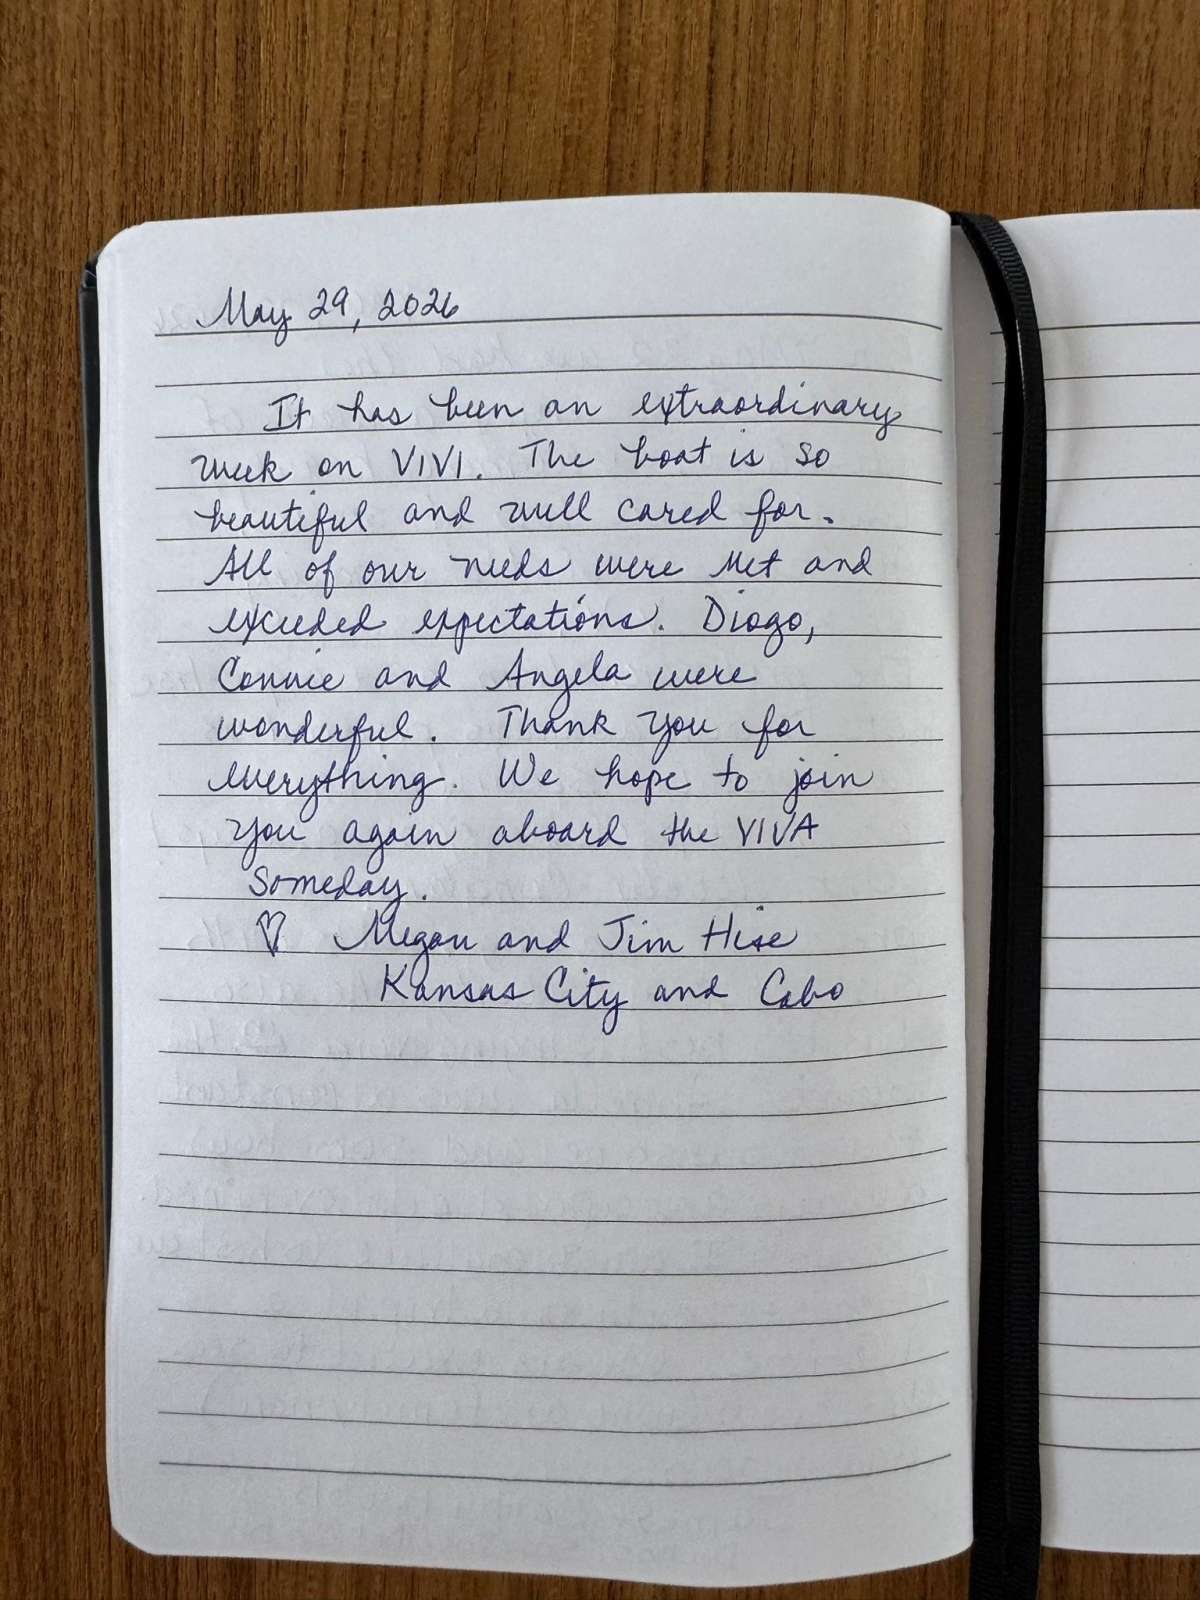 May 29, 2026
It has been an extraordinary
week on VIVI. The boat is so
beautiful and well cared for.
All of our needs were met and
exceeded expectations. Diogo,
Connie and Angela were
wonderful. Thank you for
everything. We hope to join
you again aboard the VIVA
someday.
♡ Megan and Jim Hise
Kansas City and Cabo